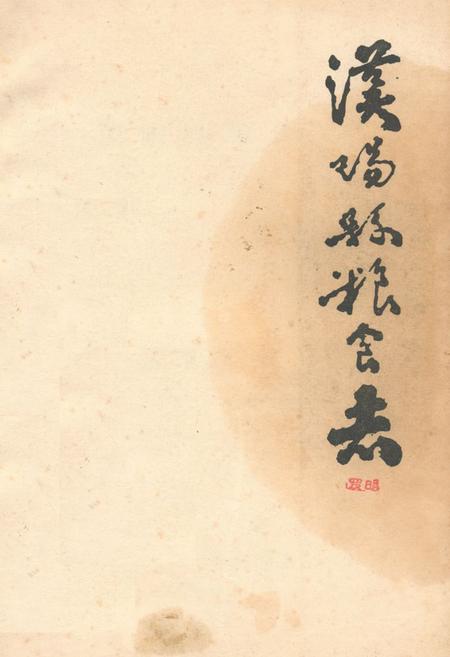 漢陽縣粮食志